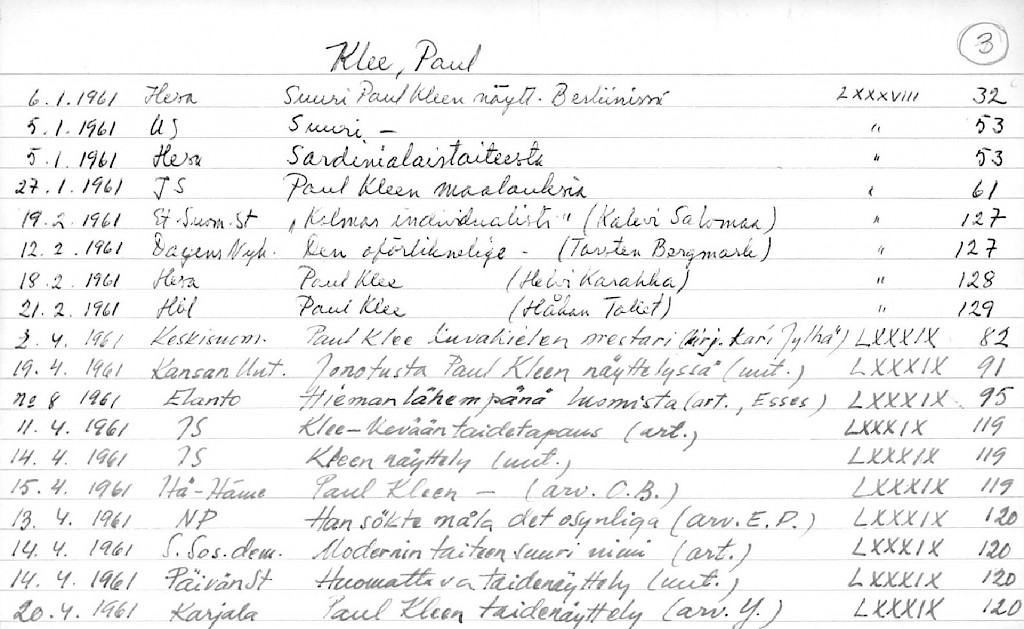 3
Klee, Paul
6.1.1961 Hesa Suuri Paul Kleen näytt. Berliinissä LXXXVIII 32
5.1.1961 US Suuri — " 53
5.1.1961 Hesa Sardinialaistaiteesta " 53
27.1.1961 TS Paul Kleen maalauksia " 61
19.2.1961 Et-Suom.St „Kolmas individualisti" (Kalevi Salomaa) " 127
12.2.1961 Dagens Nyh. Den oförliknelige - (Torsten Bergmark) " 127
18.2.1961 Hesa Paul Klee (Helvi Karahka) " 128
21.2.1961 Hbl Paul Klee (Håkan Tollet) " 129
2.4.1961 Keskisuom. Paul Klee kuvakielen mestari (kirj. Kari Jylhä) LXXXIX 82
19.4.1961 Kansan Uut. Jonotusta Paul Kleen näyttelyssä (uut.) LXXXIX 91
no 8 1961 Elanto Hieman lähempänä luomista (art., Esses) LXXXIX 95
11.4.1961 TS Klee-Kevään taidetapaus (art.) LXXXIX 119
14.4.1961 TS Kleen näyttely (uut.) LXXXIX 119
15.4.1961 Hä-Häme Paul Kleen — (arv. O.B.) LXXXIX 119
13.4.1961 NP Han sökte måla det osynliga (arv. E.P.) LXXXIX 120
14.4.1961 S.Sos.dem. Modernin taiteen suuri nimi (art.) LXXXIX 120
14.4.1961 Päivän St Huomattava taidenäyttely (uut.) LXXXIX 120
20.4.1961 Karjala Paul Kleen taidenäyttely (arv. Y.) LXXXIX 120